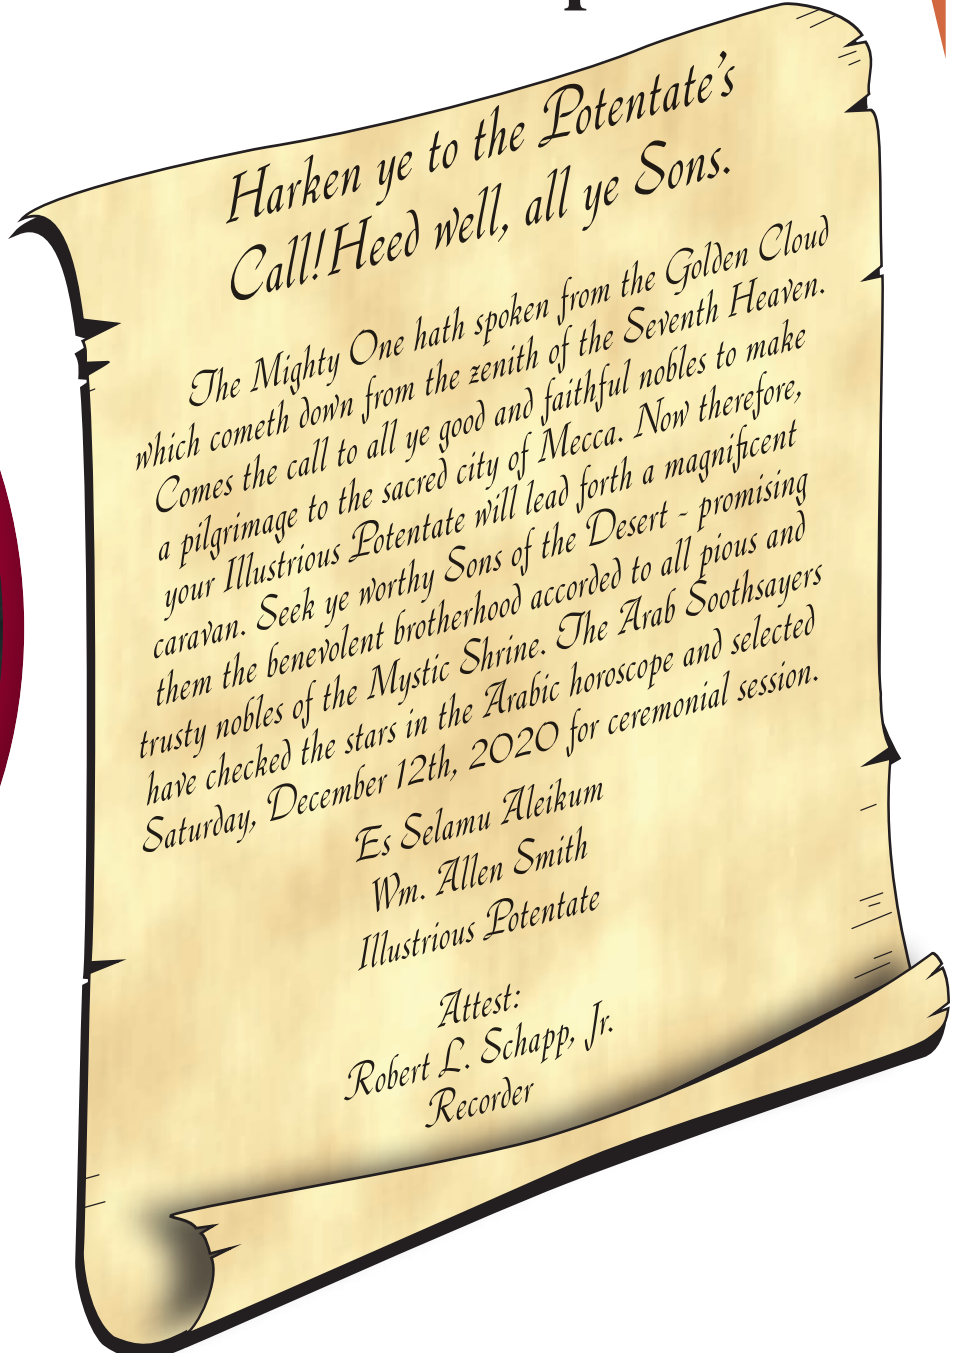 Harken ye to the Potentate's
Call!Heed well, all ye Sons.
The Mighty One hath spoken from the Golden Cloud
which cometh down from the zenith of the Seventh Heaven.
Comes the call to all ye good and faithful nobles to make
a pilgrimage to the sacred city of Mecca. Now therefore,
your Illustrious Potentate will lead forth a magnificent
caravan. Seek ye worthy Sons of the Desert - promising
them the benevolent brotherhood accorded to all pious and
trusty nobles of the Mystic Shrine. The Arab Soothsayers
have checked the stars in the Arabic horoscope and selected
Saturday, December 12th, 2020 for ceremonial session.
Es Selamu Aleikum
Wm. Allen Smith
Illustrious Potentate
Attest:
Robert L. Schapp, Jr.
Recorder